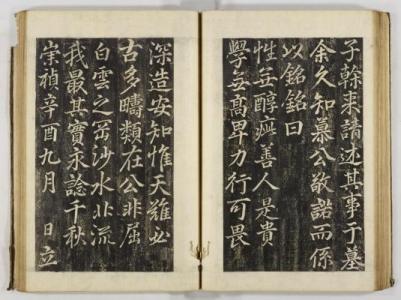 子榦来請述其事于墓
余久知慕公敬諾而係
以銘銘曰
性無醇疵善人是貴
學無高卑力行可畏
深造安知惟天難必
古多疇類在公非屈
白雲之沙水北流
我最其實永諗千秋
崇禎辛酉九月 日立